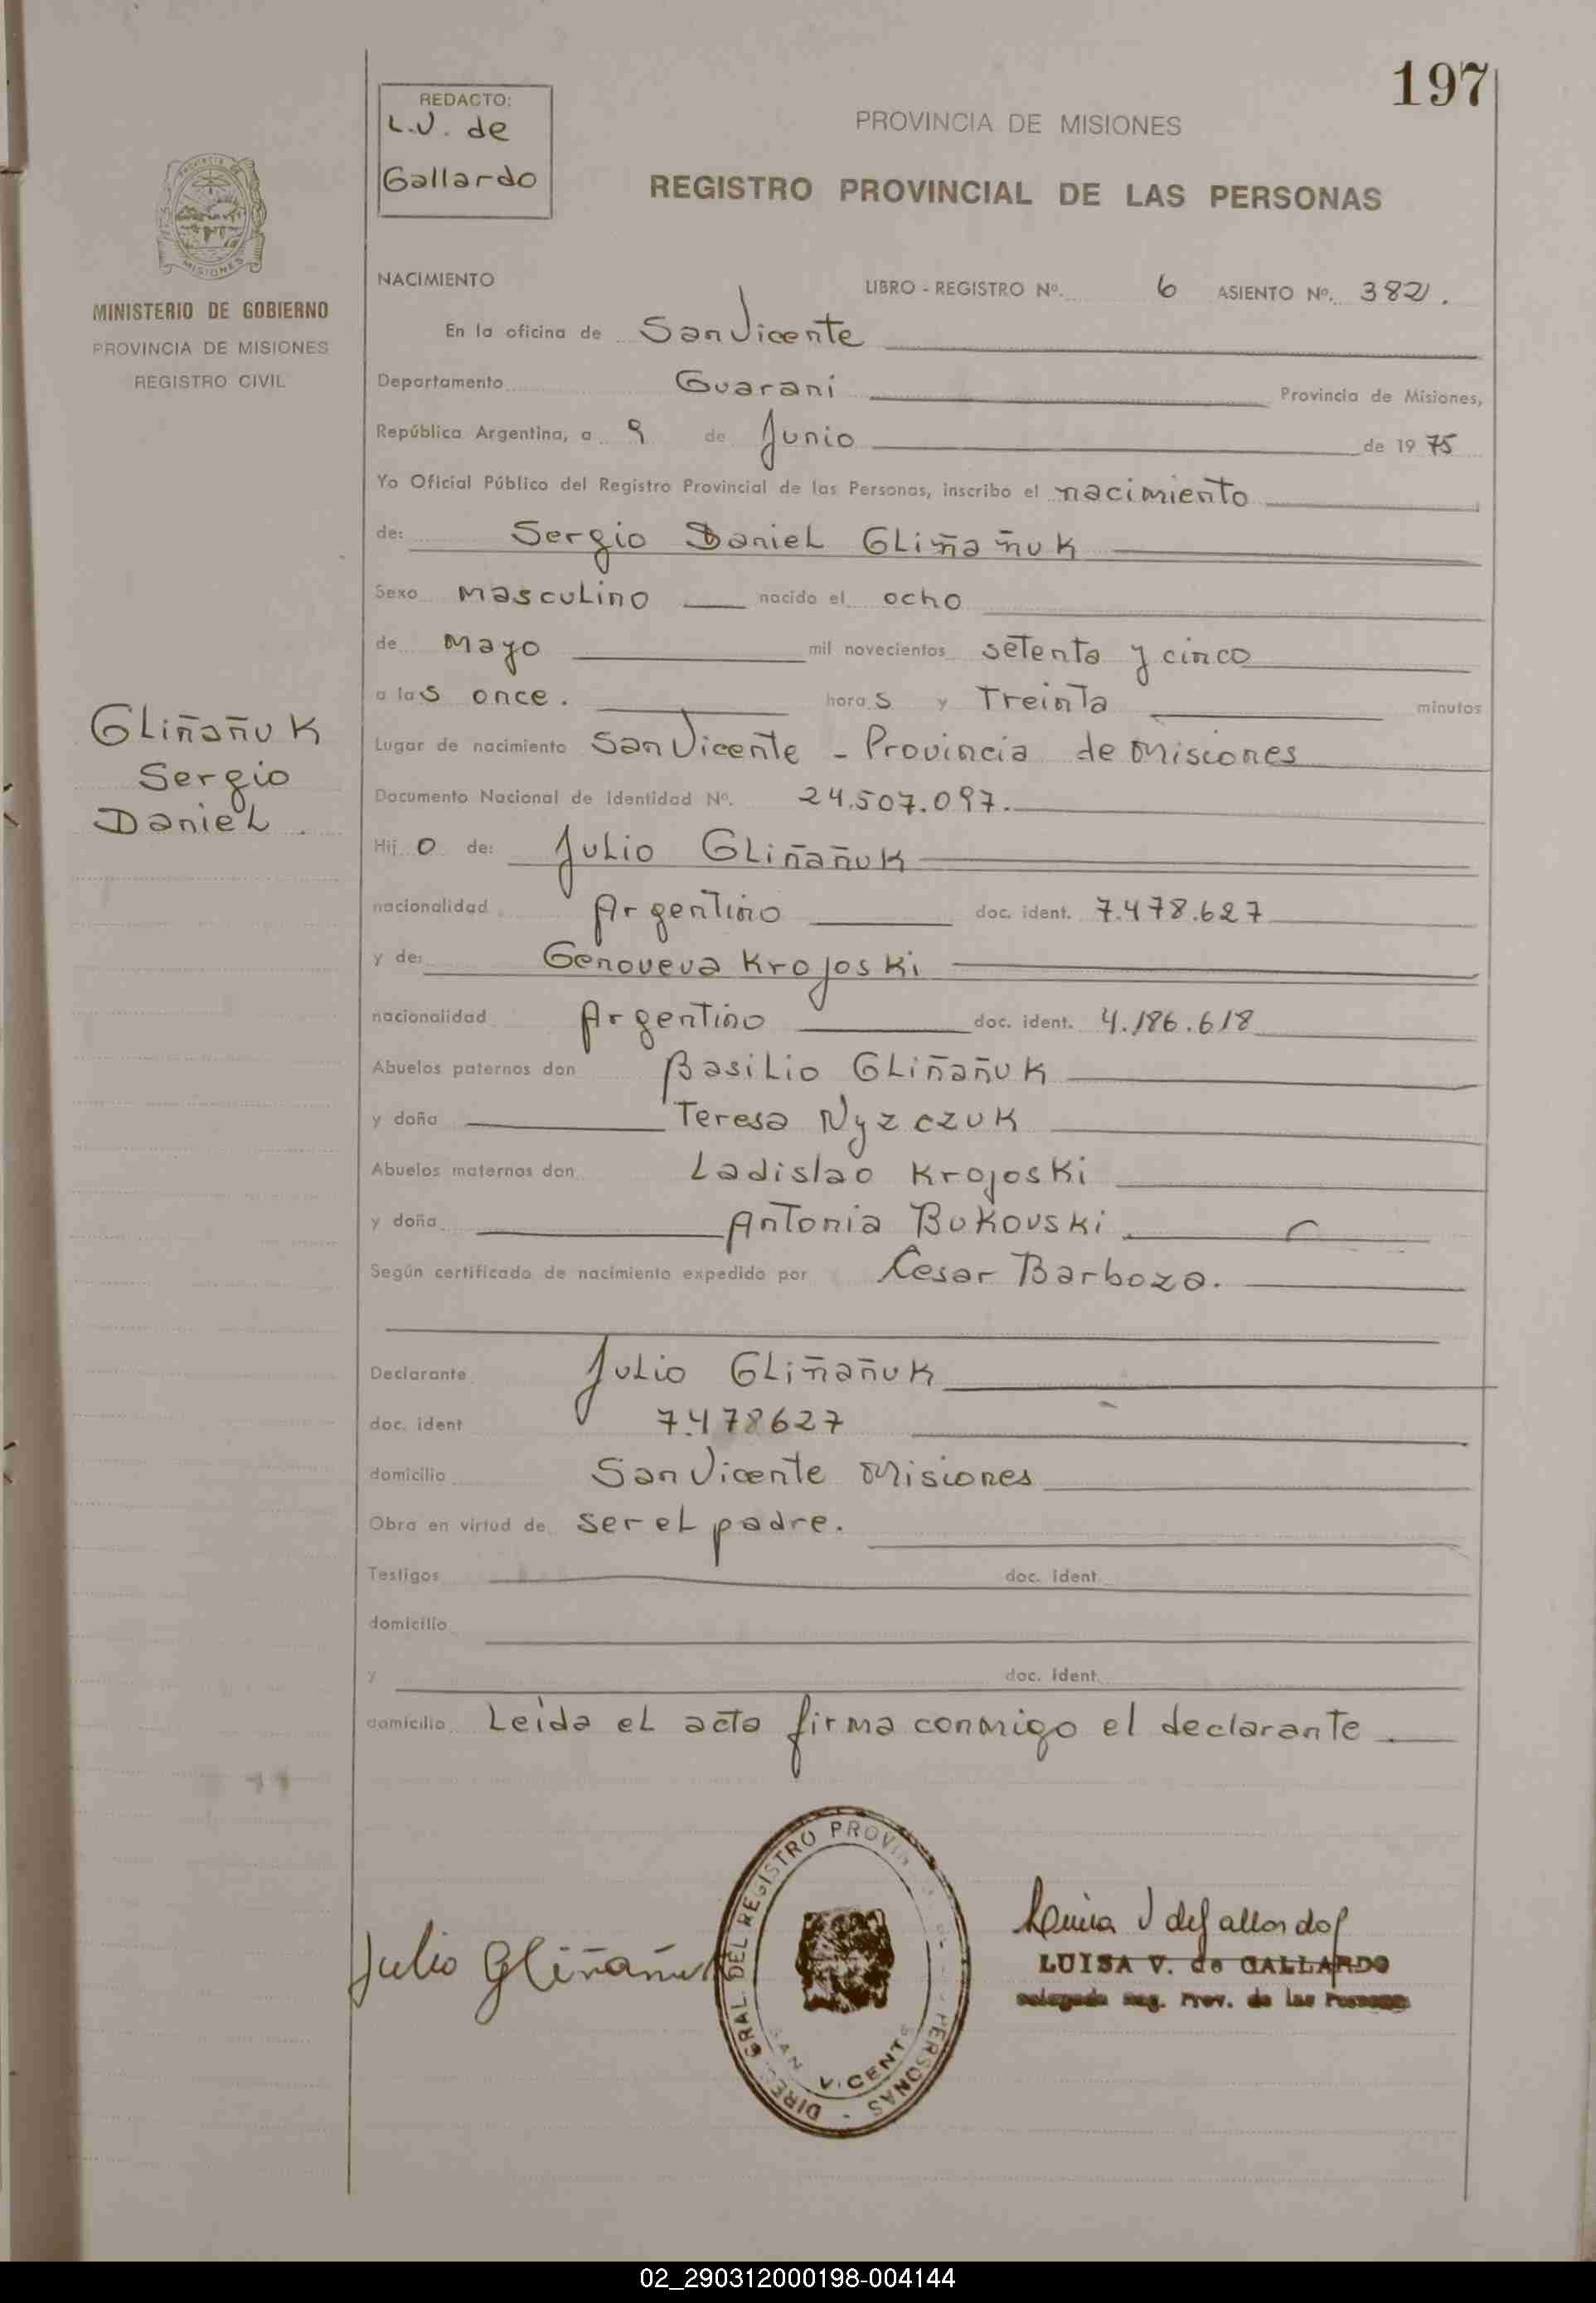 197
REDACTO:
L.V. de
Gallardo
PROVINCIA DE MISIONES
REGISTRO PROVINCIAL DE LAS PERSONAS
PROVINCIA DE
MISIONES
MINISTERIO DE GOBIERNO
PROVINCIA DE MISIONES
REGISTRO CIVIL
NACIMIENTO LIBRO - REGISTRO Nº. 6 ASIENTO Nº. 382.
En la oficina de San Vicente
Departamento Guarani Provincia de Misiones,
República Argentina, a 9 de Junio de 1975
Yo Oficial Público del Registro Provincial de las Personas, inscribo el nacimiento
de: Sergio Daniel Gliñañuk
Sexo masculino nacido el ocho
de Mayo mil novecientos setenta y cinco
a las once. horas y Treinta minutos
Gliñañuk
Sergio
Daniel.
Lugar de nacimiento San Vicente - Provincia de Misiones
Documento Nacional de Identidad Nº. 24.507.097.
Hijo de: Julio Gliñañuk
nacionalidad Argentino doc. ident. 7.478.627
y de: Genoveva Krojoski
nacionalidad Argentino doc. ident. 4.186.618
Abuelos paternos don Basilio Gliñañuk
y doña Teresa Nyzczuk
Abuelos maternos don Ladislao Krojoski
y doña Antonia Bukovski
Según certificado de nacimiento expedido por Cesar Barboza.
Declarante Julio Gliñañuk
doc. ident 7.478627
domicilio San Vicente Misiones
Obra en virtud de ser el padre.
Testigos doc. ident.
domicilio
y doc. ident.
domicilio Leída el acta firma conmigo el declarante
Julio Gliñañuk
DIREC. GRAL. DEL REGISTRO PROVIN PERSONAS -
SAN VICENTE
Luisa V de Gallardo
LUISA V. de GALLARDO
Delegada Reg. Prov. de las Personas
02_290312000198-004144